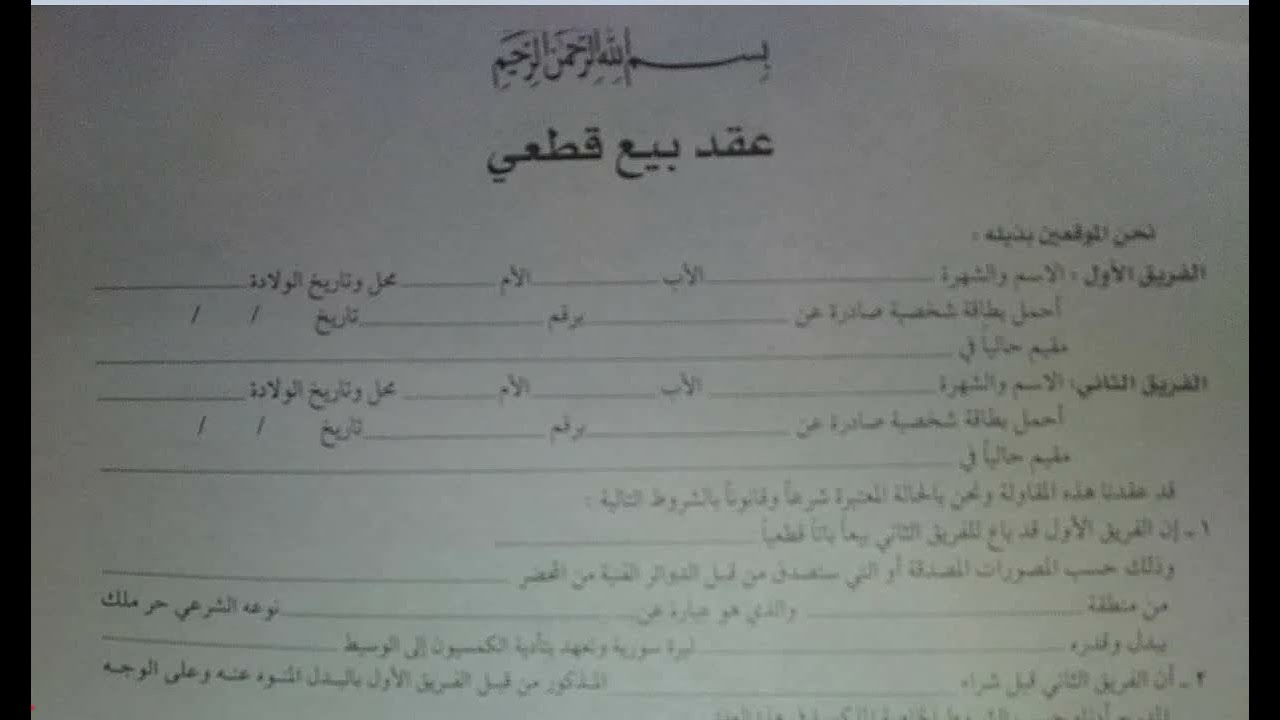 بسم الله الرحمن الرحيم
عقد بيع قطعي
نحن الموقعين بذيله :
الفريق الأول : الاسم والشهرة ـــــ الأب ـــــ الأم ـــــ محل وتاريخ الولادة ـــــ
أحمل بطاقة شخصية صادرة عن ـــــ برقم ـــــ تاريخ / /
مقيم حالياً في ـــــ
الفريق الثاني: الاسم والشهرة ـــــ الأب ـــــ الأم ـــــ محل وتاريخ الولادة ـــــ
أحمل بطاقة شخصية صادرة عن ـــــ برقم ـــــ تاريخ / /
مقيم حالياً في ـــــ
قد عقدنا هذه المقاولة ونحن بالحالة المعتبرة شرعاً وقانوناً بالشروط التالية :
١ ـ إن الفريق الأول قد باع للفريق الثاني بيعاً باتاً قطعياً ـــــ
وذلك حسب المصورات المصدقة أو التي ستصدق من قبل الدوائر الفنية من المحضر ـــــ
من منطقة ـــــ والذي هو عبارة عن ـــــ نوعه الشرعي حر ملك
ببدل وقدره ـــــ ليرة سورية وتعهد بتأدية الكمسيون إلى الوسيط ـــــ
٢ ـ أن الفريق الثاني قبل شراء ـــــ المذكور من قبل الفريق الأول بالبدل المنوه عنه وعلى الوجه